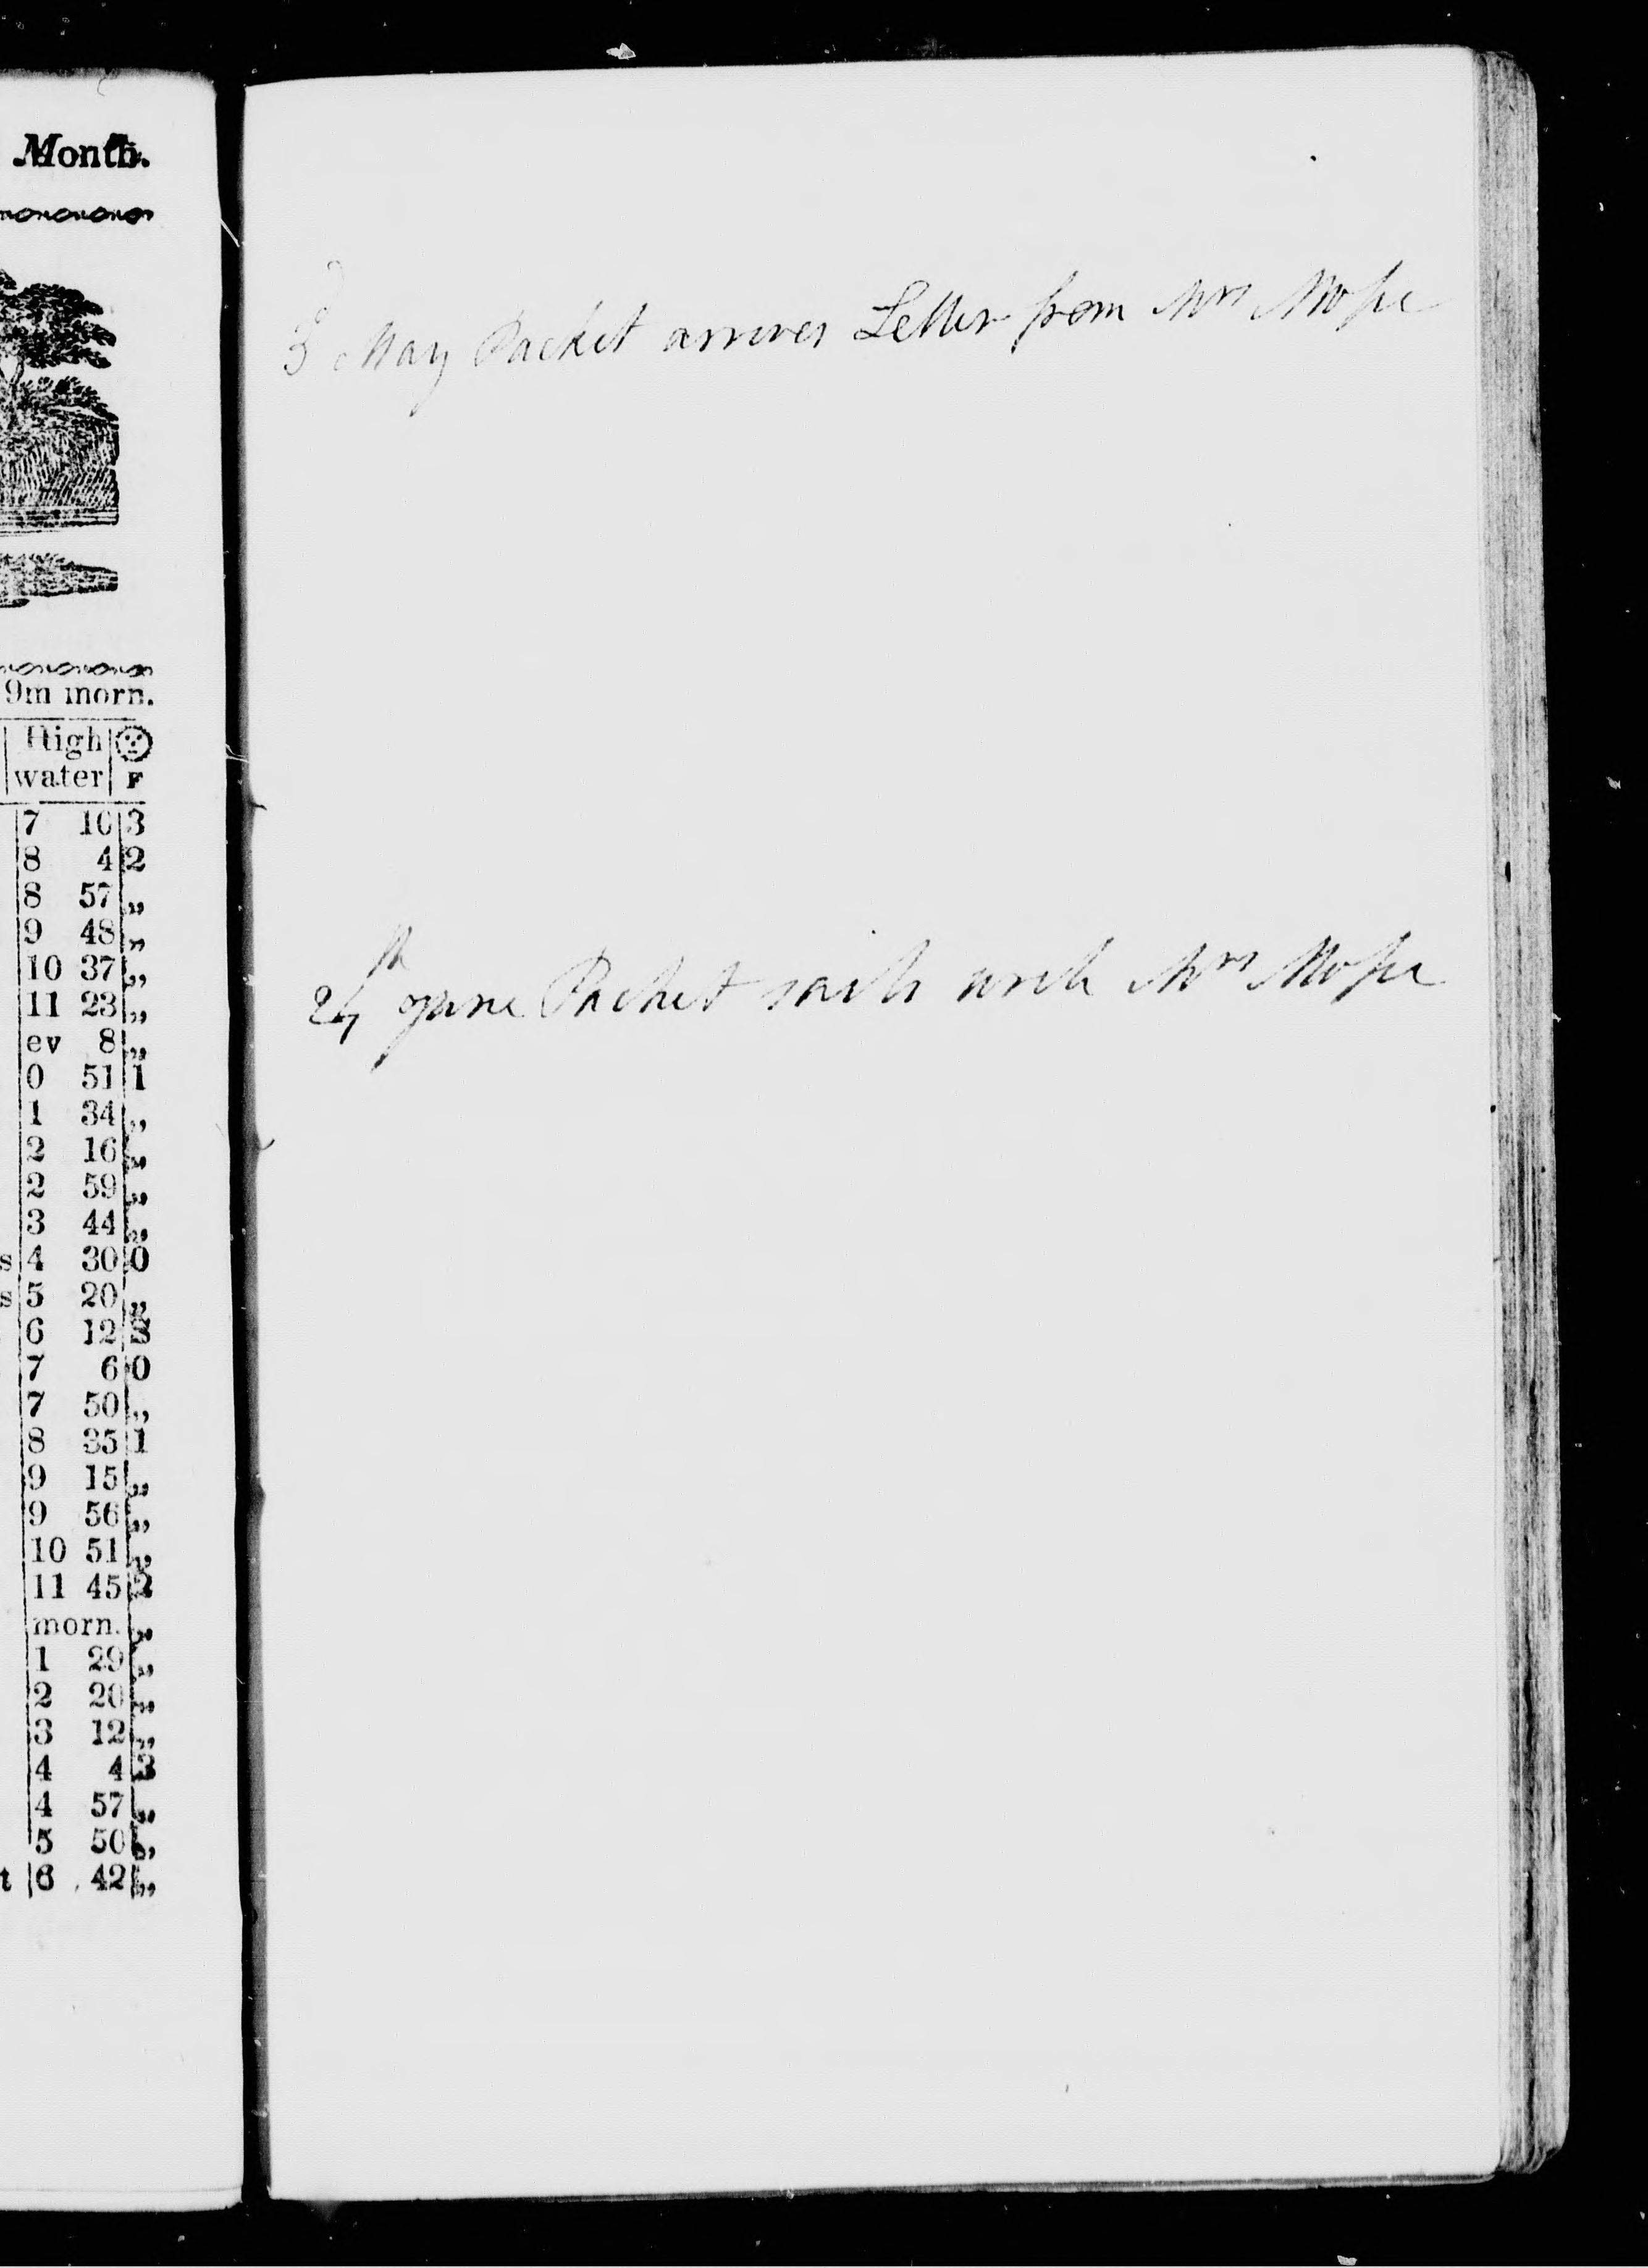 Month.
9m morn.
High
water F
7 10 3
8 4 2
8 57 „
9 48 „
10 37 „
11 23 „
ev 8 „
0 51 1
1 34 „
2 16 „
2 59 „
3 44 „
s 4 30 0
s 5 20 „
6 12 S
7 6 0
7 50 „
8 35 1
9 15 „
9 56 „
10 51 „
11 45 2
morn. „
1 29 „
2 20 „
3 12 „
4 4 3
4 57 „
5 50 „
t 6 42 „
3d May Packet arrives Letter from Mrs Mosse
24th June Packet sails with Mrs Mosse